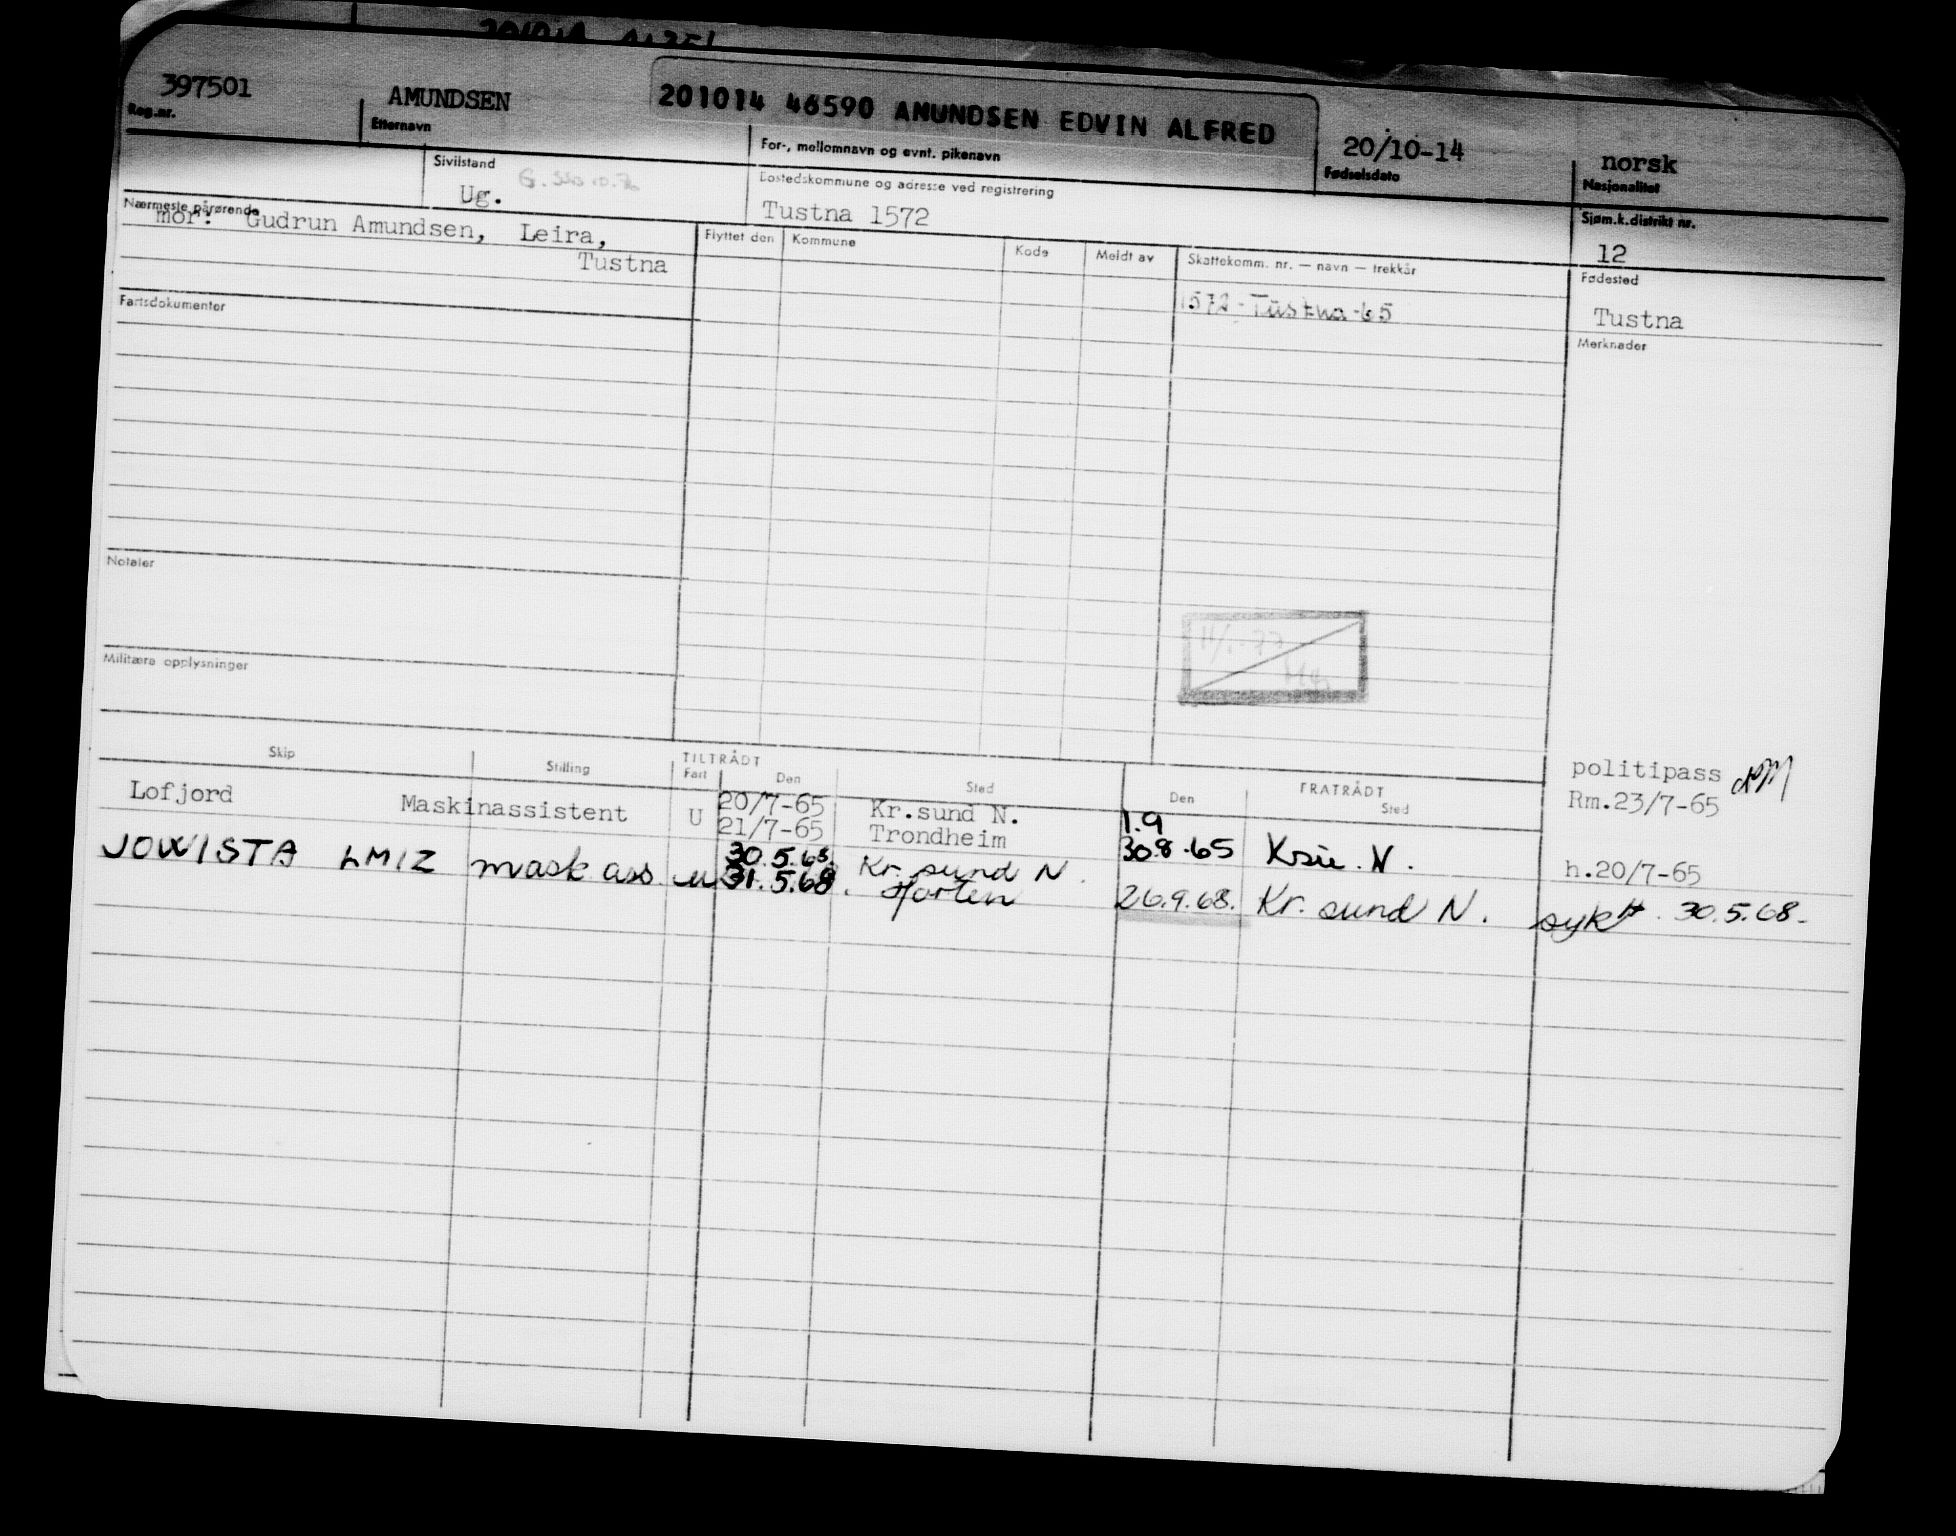 397501
Reg.nr.
AMUNDSEN
Etternavn
201014 46590 AMUNDSEN EDVIN ALFRED
For-, mellomnavn og evnt. pikenavn
20/10-14
Fødselsdato
norsk
Nasjonalitet
Sivilstand
Ug.
Bostedskommune og adresse ved registrering
Tustna 1572
Sjøm.k.distrikt nr.
12
Nærmeste pårørende
mor: Gudrun Amundsen, Leira,
Tustna
Flyttet den
Kommune
Kode
Meldt av
Skattekomm. nr. — navn — trekkår
1572-Tustna-65
Fødested
Tustna
Fartsdokumenter
Merknader
Notater
Militære opplysninger
Skip
Stilling
TILTRÅDT
Fart
Den
Sted
FRATRÅDT
Den
Sted
politipass
Rm.23/7-65
Lofjord Maskinassistent U 20/7-65 Kr.sund N. 1.9
21/7-65 Trondheim 30.8.65 Krsu. N.
h.20/7-65
JOWISTA LMIZ mask ass. u 30.5.68. Kr. sund N.
31.5.68. Horten 26.9.68. Kr. sund N. sykH. 30.5.68.